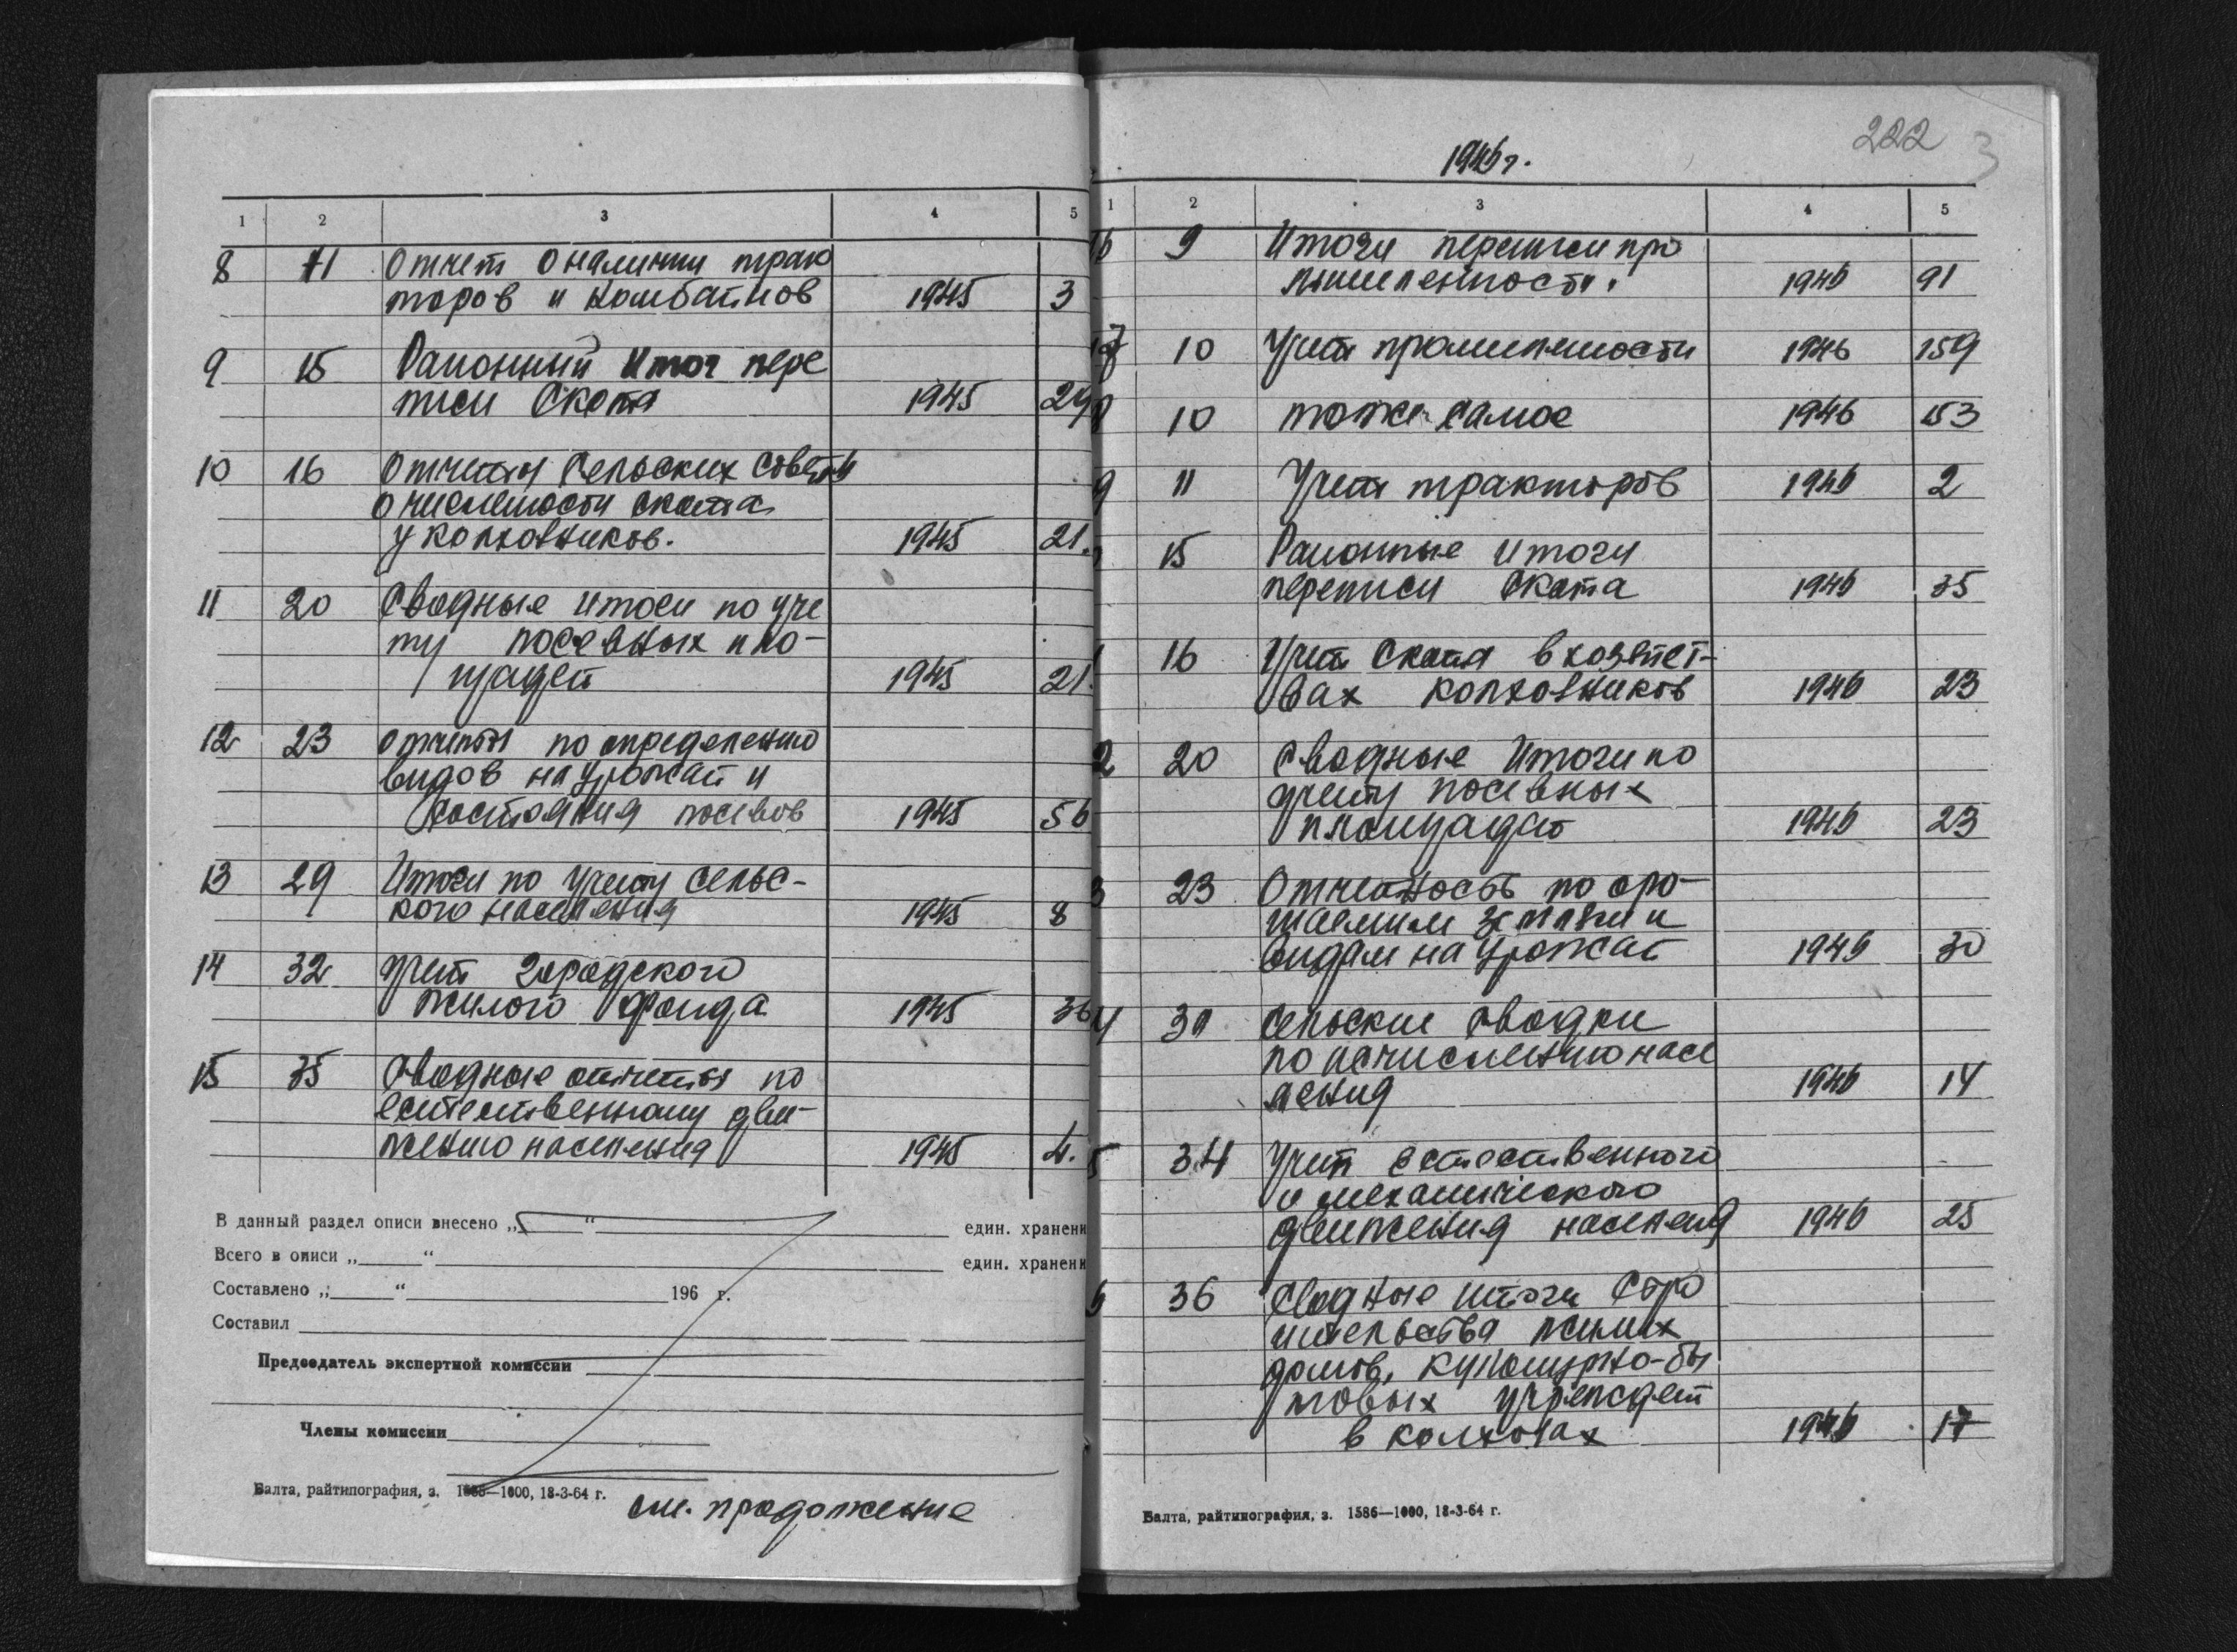 1 2 3 4 5
8 11 Отчет о наличии трак
торов и комбайнов 1945 3
9 15 Районный итог пере
писи скота 1945 29
10 16 Отчеты сельских советов
о численности скота
у колхозников. 1945 21.
11 20 Сводные итоги по уче
ту посевных пло-
щадей 1945 21.
12 23 Отчеты по определению
видов на урожай и
состояния посевов 1945 56
13 29 Итоги по учету сельс-
кого населения 1945 8
14 32 Учет городского
жилого фонда 1945 36
15 35 Сводные отчеты по
естественному дви-
жению населения 1945 4.
В данный раздел описи внесено „ “ един. хранени
Всего в описи „ “ един. хранени
Составлено „ “ 196 г.
Составил
Председатель экспертной комиссии
Члены комиссии
Балта, райтипография, з. 1586—1000, 18-3-64 г.
см. продолжение
222 3
1946 г.
1 2 3 4 5
16 9 Итоги переписи про
мышленности. 1946 91
17 10 Учет промышленности 1946 159
8 10 тоже самое 1946 153
9 11 Учет тракторов 1946 2
15 Районные итоги
переписи скота 1946 35
1 16 Учет скота в хозяйст-
вах колхозников 1946 23
2 20 Сводные итоги по
учету посевных
площадей 1946 23
3 23 Отчетность по оро-
шаемым землям и
видам на урожай 1946 30
4 30 Сельские сводки
по исчислению насе
ления 1946 14
5 34 Учет естественного
и механического
движения населения 1946 25
6 36 Сводные итоги стро
ительства жилых
домов, культурно-бы
товых учрежден
в колхозах 1946 17
Балта, райтипография, з. 1586—1000, 18-3-64 г.